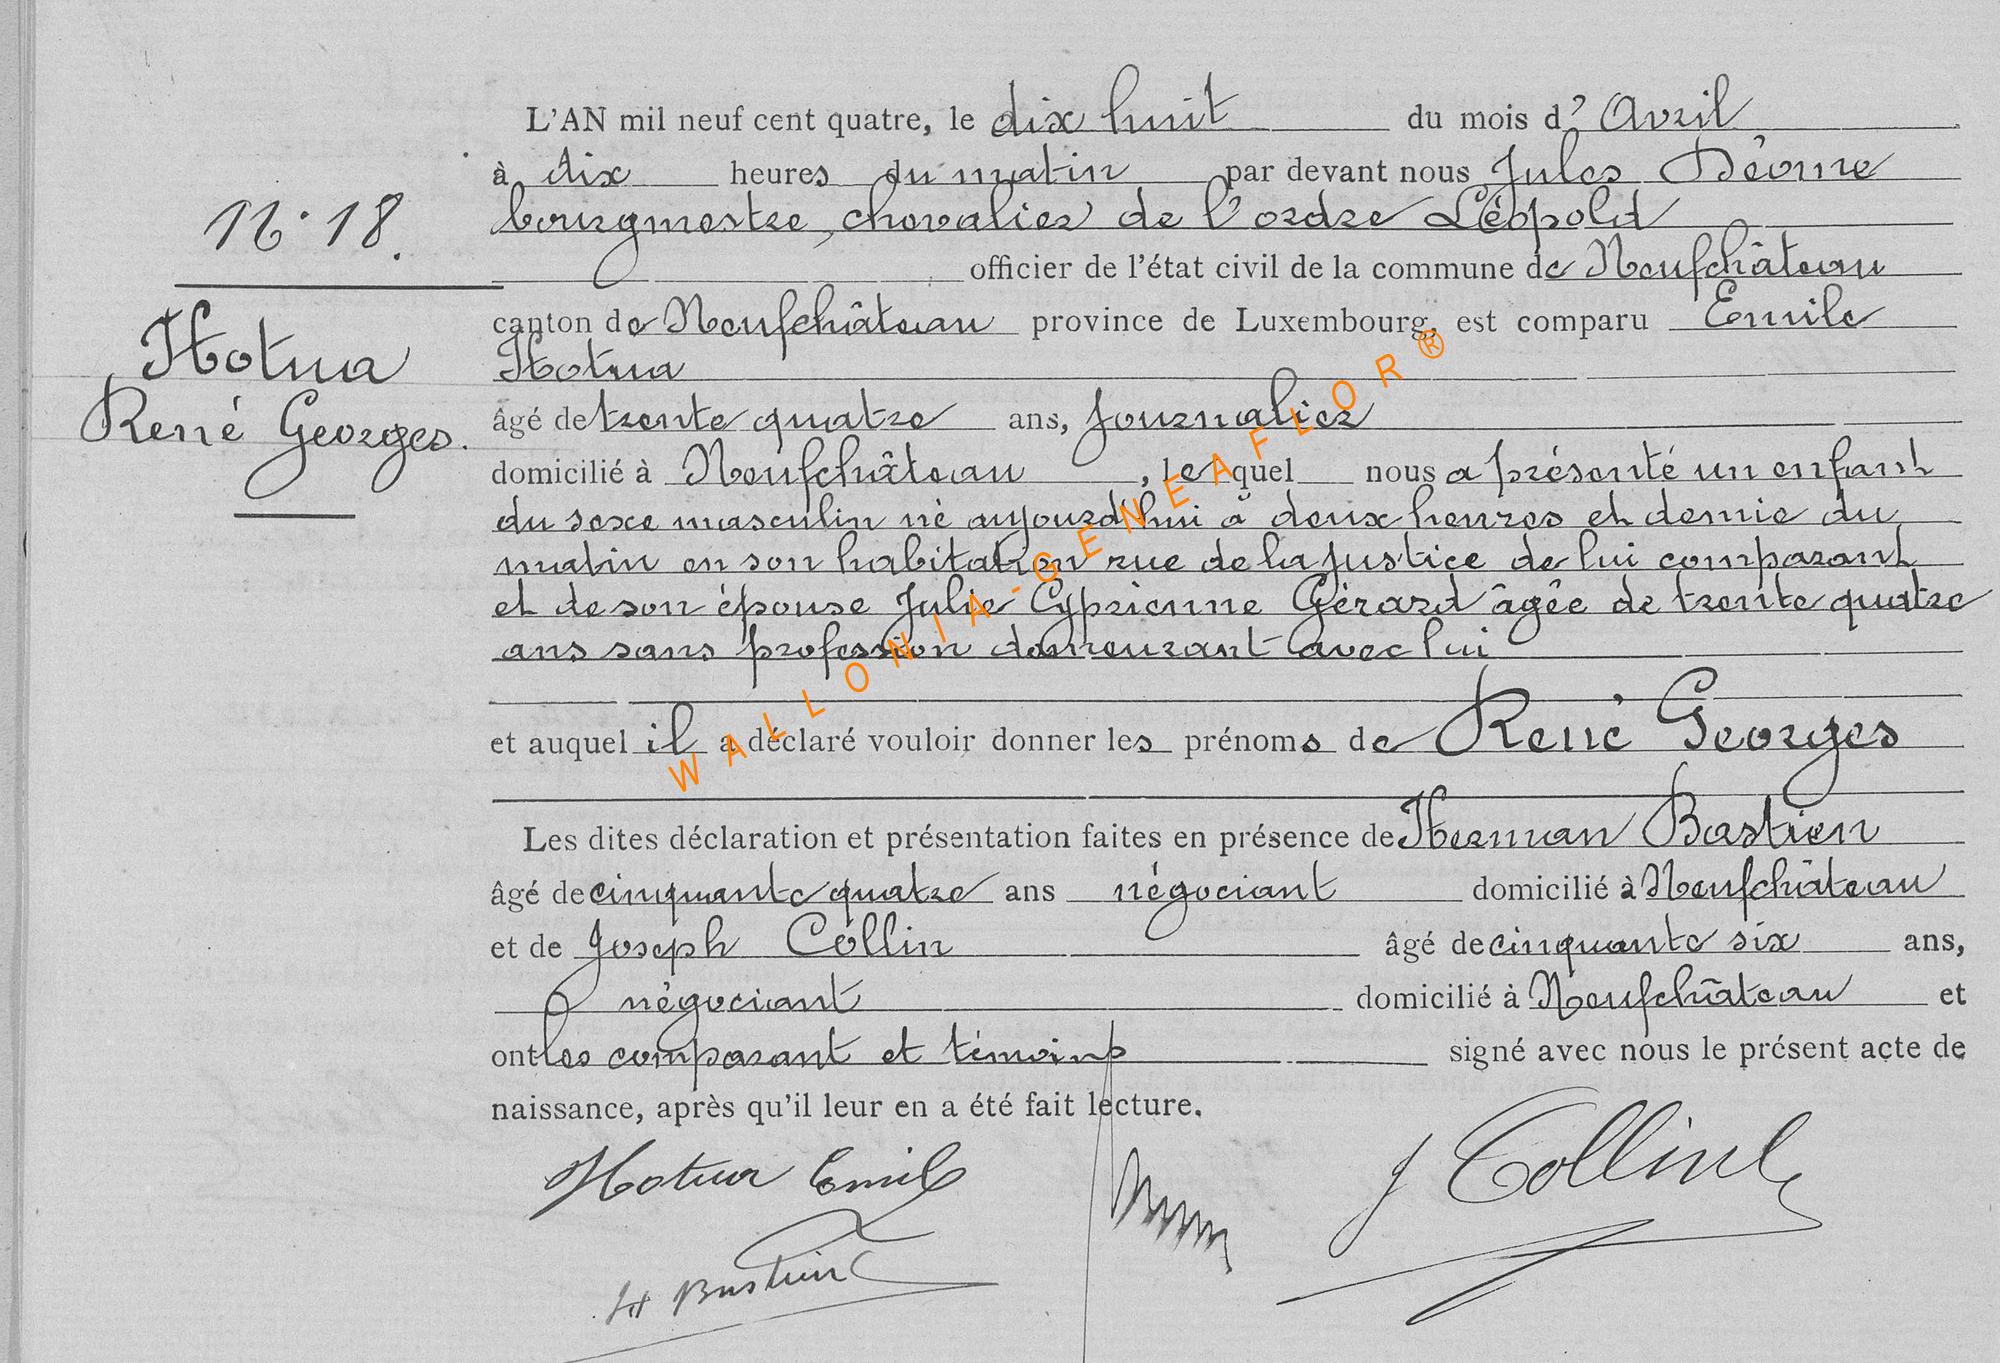 L'AN mil neuf cent quatre, le dix huit du mois d'Avril
à dix heures du matin par devant nous Jules Déome
bourgmestre, chevalier de l'ordre Léopold
N° 18.
officier de l'état civil de la commune de Neufchâteau
canton de Neufchâteau province de Luxembourg, est comparu Emile
Hotua
Hotua
René Georges.
âgé de trente quatre ans, journalier
domicilié à Neufchâteau, lequel nous a présenté un enfant
du sexe masculin né aujourd'hui à deux heures et demie du
matin en son habitation rue de la justice de lui comparant
et de son épouse Julie Cyprienne Gérard âgée de trente quatre
ans sans profession demeurant avec lui
et auquel il a déclaré vouloir donner les prénoms de René Georges
Les dites déclaration et présentation faites en présence de Herman Bastien
âgé de cinquante quatre ans négociant domicilié à Neufchâteau
et de Joseph Collin âgé de cinquante six ans,
négociant domicilié à Neufchâteau et
ont les comparant et témoins signé avec nous le présent acte de
naissance, après qu'il leur en a été fait lecture.
Hotua Emile
J Collin
H Bastien
WALLONIA-GENEAFLOR®